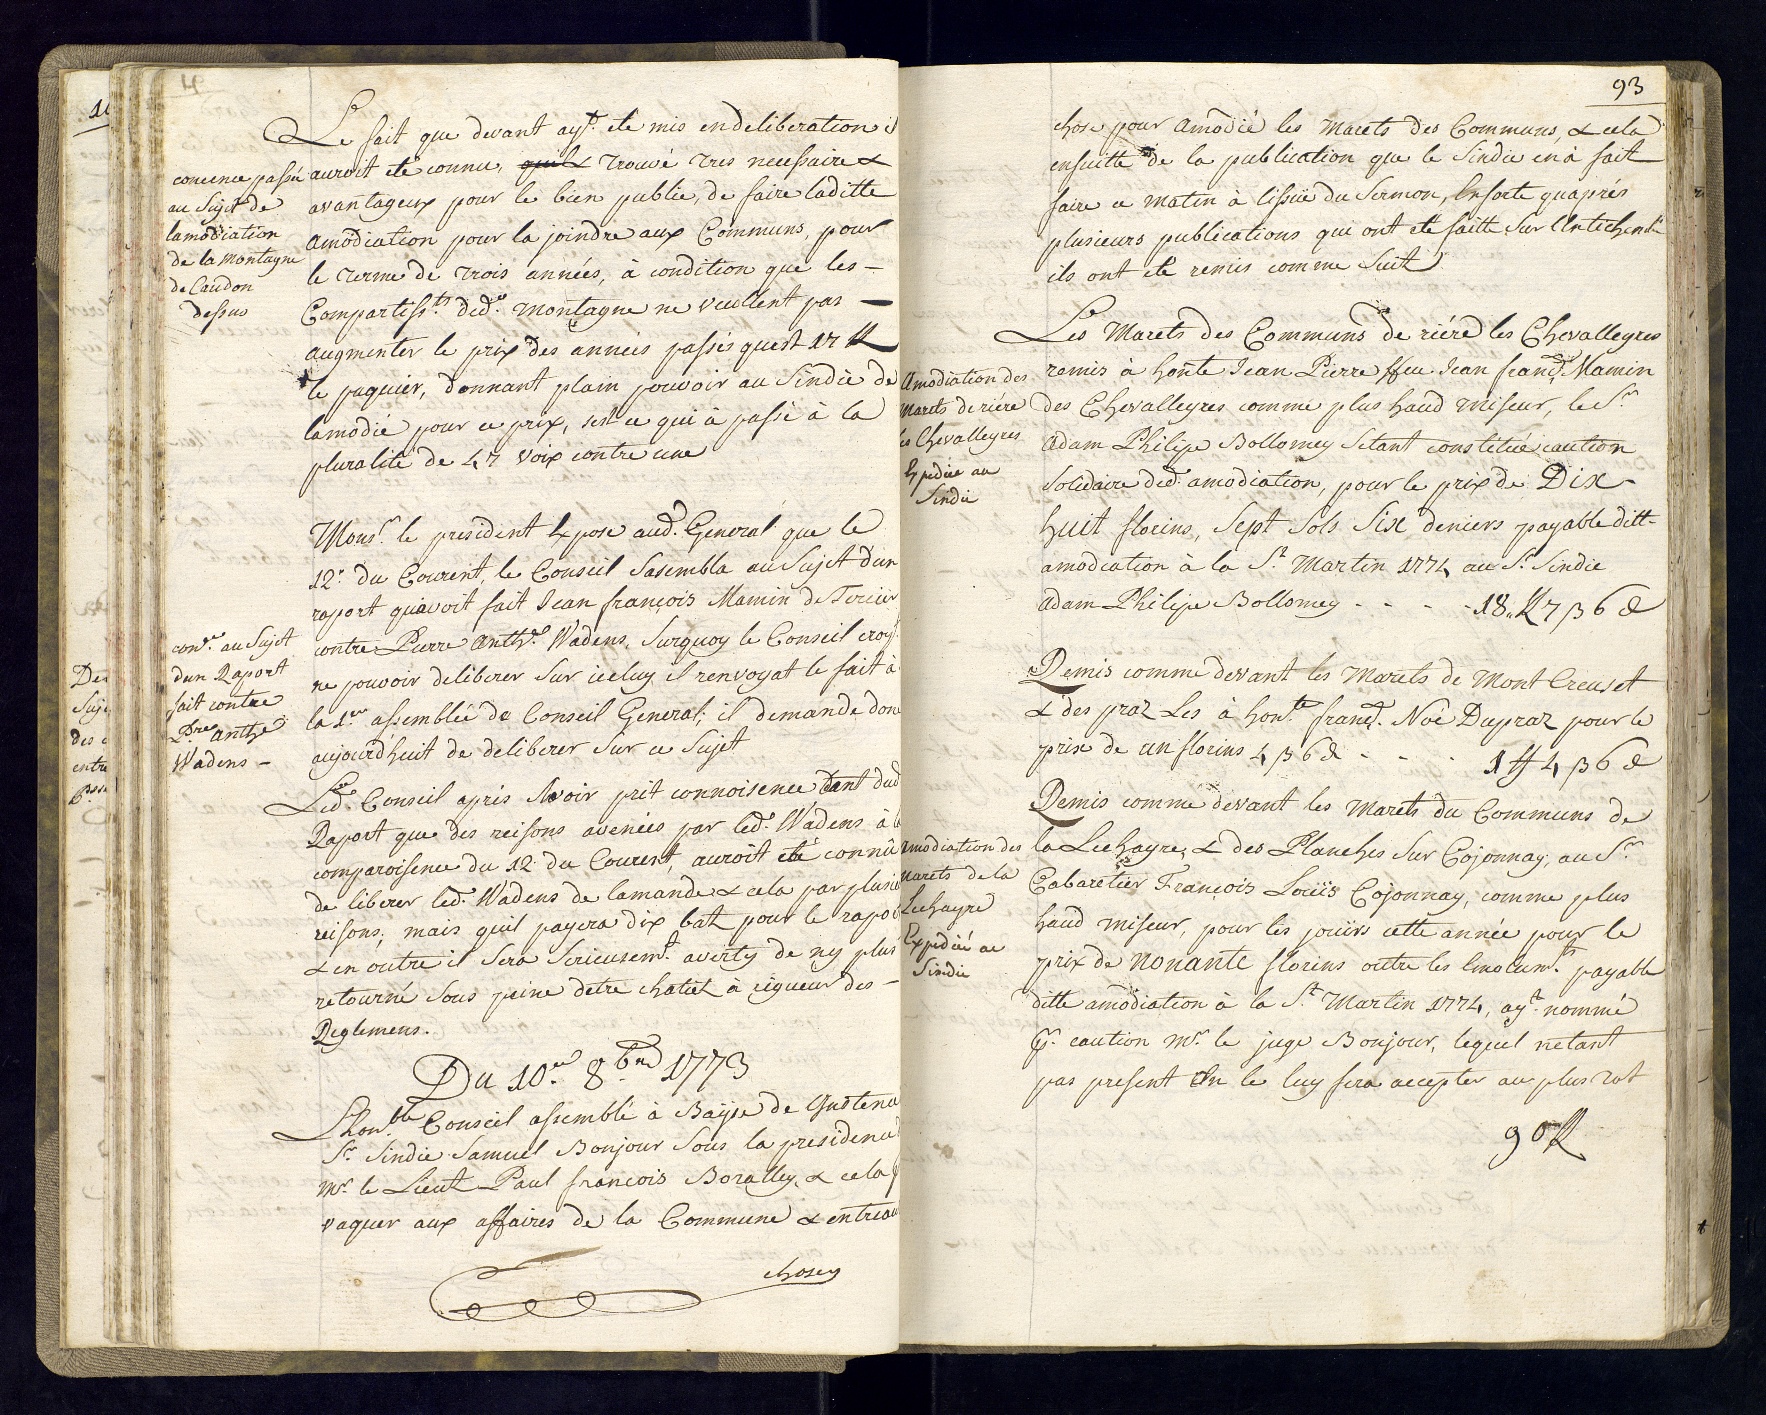 Le fait que devant ayt. ete mis en deliberation il
conience passée
au Sujet de
lamodiation
de la Montagne
de Caudon
dessus
auroit ete connu, trouvé tres necessaire &
avantageux pour le bien public, de faire laditte
amodiation pour la joindre aux Communs, pour
le terme de trois années, à condition que les
Compartiss.ts dud.e montagne ne veullent pas
augmenter le prix des années passés quest 17 ff
le paquier, donnant plain pouvoir au Sindic de
lamodié pour ce prix, sest ce qui à passé à la
pluralité de 47 voix contre une
Mons.r le president Expose aud.t General que le
12.e du Courent, le Conseil Sasembla au Sujet dun
raport quavoit fait Jean françois Mamin de Tercier
con.ce au Sujet
dun Raport
fait contre
P.rre Anth.e
Wadens
contre Pierre Anth.e Wadens, Surquoy le Conseil croyt.
ne pouvoir deliberer Sur iceluy il renvoyat le fait à
la 1.ere assemblée de Conseil General, il demande donc
aujourdhuit de deliberer Sur ce Sujet
Led.t Conseil aprés Avoir prit connoisence tant dud
Raport que des reisons avenées par led.t Wadens à
comparoisence du 12 du Courent, auroit eté connû
de liberer led.t Wadens de lamande & cela par plusie
reisons, mais quil payera dix bat pour le rapor
& en outre il Sera Serieusem.t averty de ny plus
retourné Sous peine detre chatiez à rigueur des
Reglemens.
Du 10.e 8.bre 1773
Lhon.ble Conseil assemblé à Bayse de
S.r Sindic Samuel Bonjour Sous la presidence
M.r le Lieut Paul françois Boralley, & cela p
vaquer aux affaires de la Commune & entreau
choses
93
chose pour amodié les Marets des Communs, & cela
ensuitte de la publication que le Sindic en à fait
faire ce matin à lissüe du Sermon, Ensorte quaprés
plusieurs publications qui ont eté faitte Sur
ils ont eté remis comme Suit
Les Marets des Communs de riére les Chevalleyres
Amodiation des
Marets de riére
les Chevalleyres
Expediée au
Sindic
remis à honte Jean Pierre ffeu Jean franç. Mamin
des Chevalleyres comme plus haud miseur, le S.r
Adam Philipe Bollomey Setant constitué caution
Solidaire dud. amodiation, pour le prix de Dix
huit florins, Sept Sols Six deniers payable ditt
amodiation à la S.t Martin 1774 au S.r Sindic
Adam Philipe Bollomey - - - - 18 ff 7 β 6 d
Remis comme devant les Marets de Mont Creuset
& des praz Les à hon.te franç. Noè Dupraz pour le
prix de un florins 4 β 6 d - - - 1 ff 4 β 6 d
Remis comme devant les Marets du Communs de
amodiation des
marets de la
Lechayre
Expediée au
Sindic
la Lechayre, & des Planches Sur Cojonnay, au S.r
Cabaretier François Louïs Cojonnay, comme plus
haud miseur, pour les jouïrs cette année pour le
prix de nonante florins outre les Emolum.ts payable
ditte amodiation à la S.t Martin 1774, ay.t nommé
p.r caution M.r le juge Bonjour, lequel nétant
pas present on le luy fera accepter au plus tot
90 ff